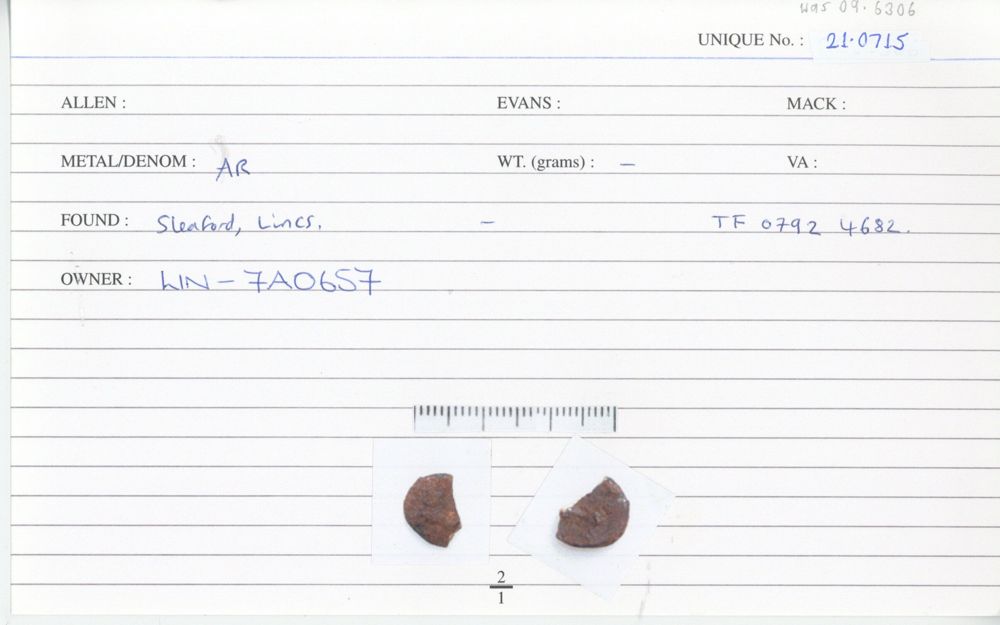 was 09.6306
UNIQUE No. : 21.0715
ALLEN : EVANS : MACK :
METAL/DENOM : AR WT. (grams) : – VA :
FOUND : Sleaford, Lincs. – TF 0792 4682.
OWNER : LIN – 7A0657
2
1